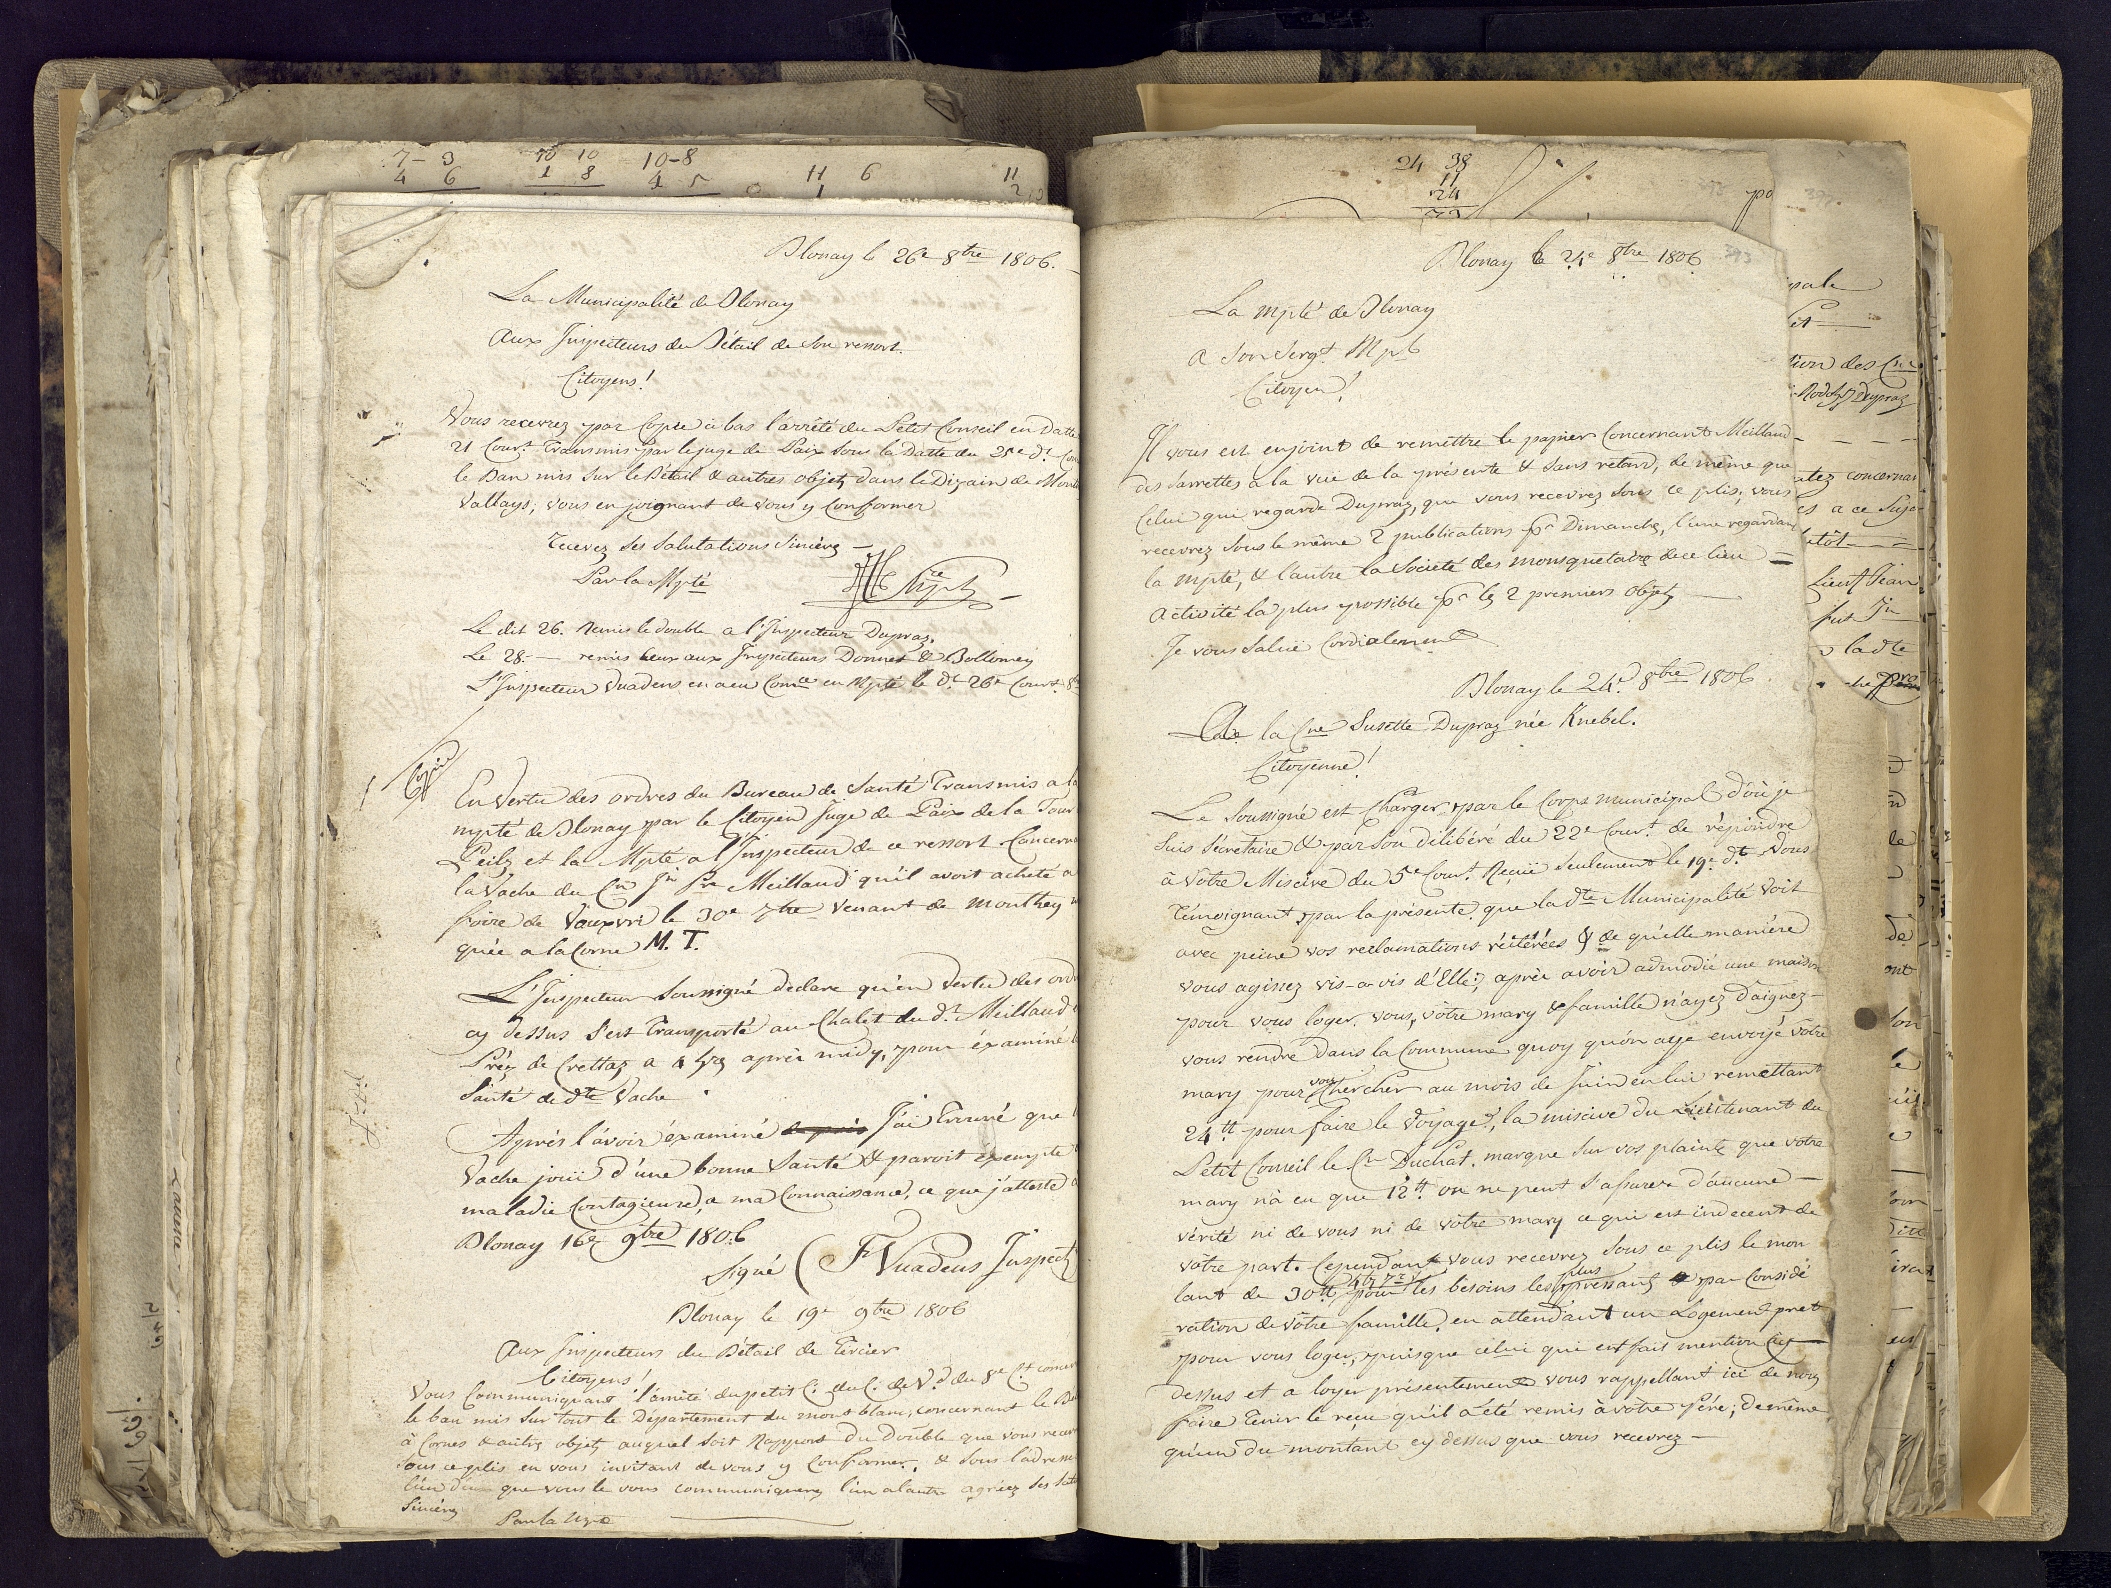 7-3 10 10 10-8 11 6 11
4 6 1 8 4 5 1 2
Blonay le 26e 8bre 1806.
La Municipalité de Blonay
Aux Inspecteurs du Bétail de Son ressort.
Citoyens!
Vous recevrez par Copie ci bas l'arrêté du Petit Conseil en Datte
21 Cour.t Transmis par le juge de Paix Sous la Datte du 25e d.t
le Ban mis Sur le Bétail & autres objets dans le Dizain de Mont
Vallays; vous enjoignant de vous y Conformer
recevez Ses Salutations Sincères —
Par la Mpté
Le dit 26. Remis le double a l'Inspecteur Dupraz.
Le 28.— remis ceux aux Inspecteurs Donnet & Bollomey
L'Inspecteur Vuadens en a eu Com.ce en Mpté le d.t 26e Cour.t
Copie
En Vertu des ordres du Bureau de Santé Transmis a la
mpté de Blonay par le Citoyen Juge de Paix de la Tour
Peilz et la Mpté a l'Inspecteur de ce ressort Concern
la Vache du Cn Jn Fs Meilland qu'il avoit acheté a
foire de Vauxvri le 30e 7bre venant de Monthey
quée a la Corne M. T.
L'Inspecteur Soussigné déclare qu'en Vertu des ord
cy dessus S'est Transporté au Chalet du d.t Meilland
Préz de Crettaz a 4 hrs après midy, pour éxaminé
Santé de dte Vache
Après l'avoir éxaminé J'ai Trouvé que
Vache jouï d'une bonne Santé & paroit éxempte
maladie Contagieuse, a ma Connaissance, ce que j'atteste
Blonay 16e 9bre 1806
Signé (Fs Vuadens Inspect
Blonay le 19e 9bre 1806
Aux Inspecteurs du Bétail de Tercier
Citoyens!
Vous Communiquant l'arrêté du petit C. du C. de V.d du 8e C.t concer
le ban mis Sur tout le Département du mont blanc, concernant le
à Cornes & autres objets auquel Soit Rapport Du Double que vous recev
Sous ce plis en vous invitant de vous y Conformer, & Sous l'adresse
que vous le vous communiquerez l'un a l'autre agréez Ses
Sincères
Par la Mpté
24 38
11
24
73
393
Blonay le 24e 8bre 1806
La Mpté de Blonay
a Son Sergt Mpl
Citoyen!
Il vous est enjoint de remettre le papier Concernant Meilland
des Sarrettes a la vue de la présente & Sans retard, de même que
Celui qui regarde Dupraz, que vous recevrez Sous ce plis; vous
recevrez Sous le même 2 publications pr Dimanche, l'une regardant
la Mpté, & l'autre la Société des mousquetaires de ce lieu —
Activité la plus possible pr les 2 premiers objets —
Je vous Saluë Cordialement
Blonay le 24e 8bre 1806
A la Cne Susette Dupraz née Knebel.
Citoyenne!
Le Soussigné est Charger par le Corps municipal d'où je
Suis Sécretaire & par Son délibéré du 22e Cour.t de répondre
à Vôtre Miscive du 5e Cour.t Reçuë Seulement le 19e d.t Vous
Témoignant par la présente, que la dte Municipalité Voit
avec peine vos reclamations réitérées & de qu'elle maniére
vous agissez vis-a-vis d'Elle; après avoir admodié une maison
pour vous loger, vous, vôtre mary & famille n'ayez daignez —
vous rendre dans la Commune quoy qu'on aye envoyé vôtre
mary pour vous Chercher au mois de Juin en lui remettant
24 tt pour faire le Voyage, la miscive du Lieutenant du
Petit Conseil le Cn Duchat, marque Sur vos plaintes que vôtre
mary n'a eu que 12 tt on ne peut S'assurer d'aucune —
vérité ni de vous ni de vôtre mary ce qui est indecent de
vôtre part. Cependant vous recevrez Sous ce plis le mon
tant de 30 tt pour les besoins les plus pressants & par Considé
ration de vôtre famille, en attendant un Logement pret
pour vous loger, puisque celui qui est fait mention Cy
dessus et a loyer présentement vous rappellant ici de nous
faire Tenir le reçu qu'il a été remis à vôtre Pére; de même
qu'un du montant cy dessus que vous recevrez —
Rodph Dupraz
concernan
Lieut Jean